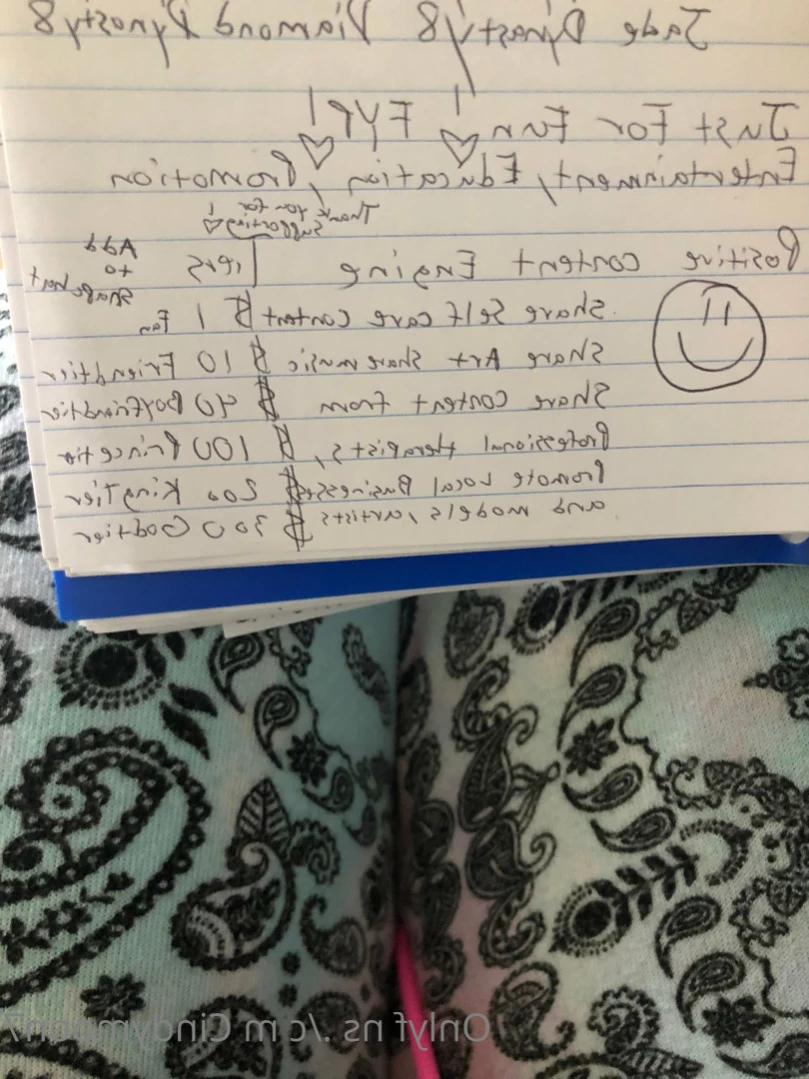 Jade Dynasty8 Diamond Dynasty8
Just For Fun ! FYP!
Entertainment, Education, Promotion
Thank you for
supporting!
Positive content Engine Tiers
Add
to
Share Self care content $ 1 Fan
Share Art share music $ 10 Friendtier
Share content from $ 40 Boyfriendtier
Professional therapists, $ 100 Princetier
Promote Local Businesses $ 200 KingTier
and models, artists $ 300 Godtier